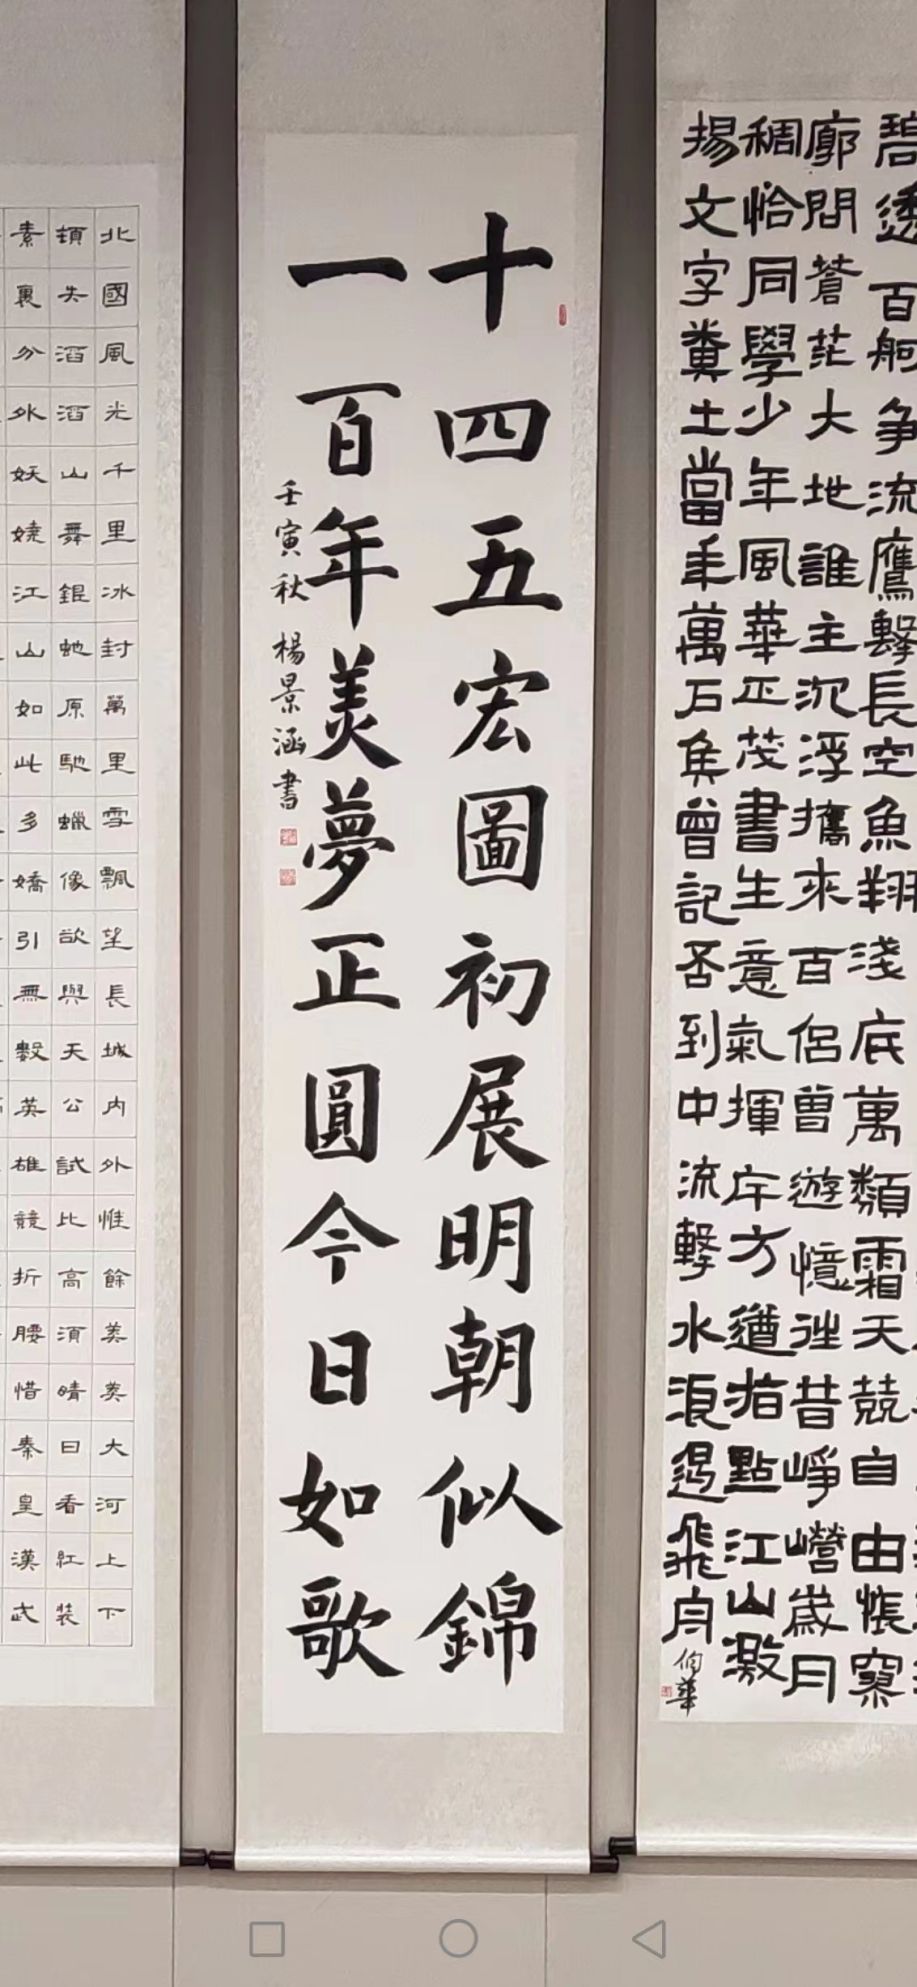 碧透百舸争流鷹擊長空魚翔淺底萬類霜天競自由悵寥
廓問蒼茫大地誰主沉浮攜來百侶曾遊憶往昔崢嶸歲月
稠恰同學少年風華正茂書生意氣揮斥方遒指點江山激
揚文字糞土當年萬戶侯曾記否到中流擊水浪遏飛舟
伯華
十四五宏圖初展明朝似錦
一百年美夢正圓今日如歌
壬寅秋楊景涵書
北國風光千里冰封萬里雪飄望長城内外惟餘莽莽大河上下
頓失滔滔山舞銀蛇原馳蠟像欲與天公試比高須晴日看紅裝
素裹分外妖嬈江山如此多嬌引無數英雄競折腰惜秦皇漢武